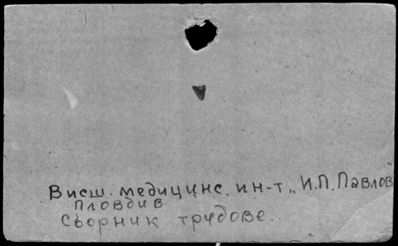 Висш. медицинс. ин-т „И.П. Павлов"
Пловдив
Сборник трудове..